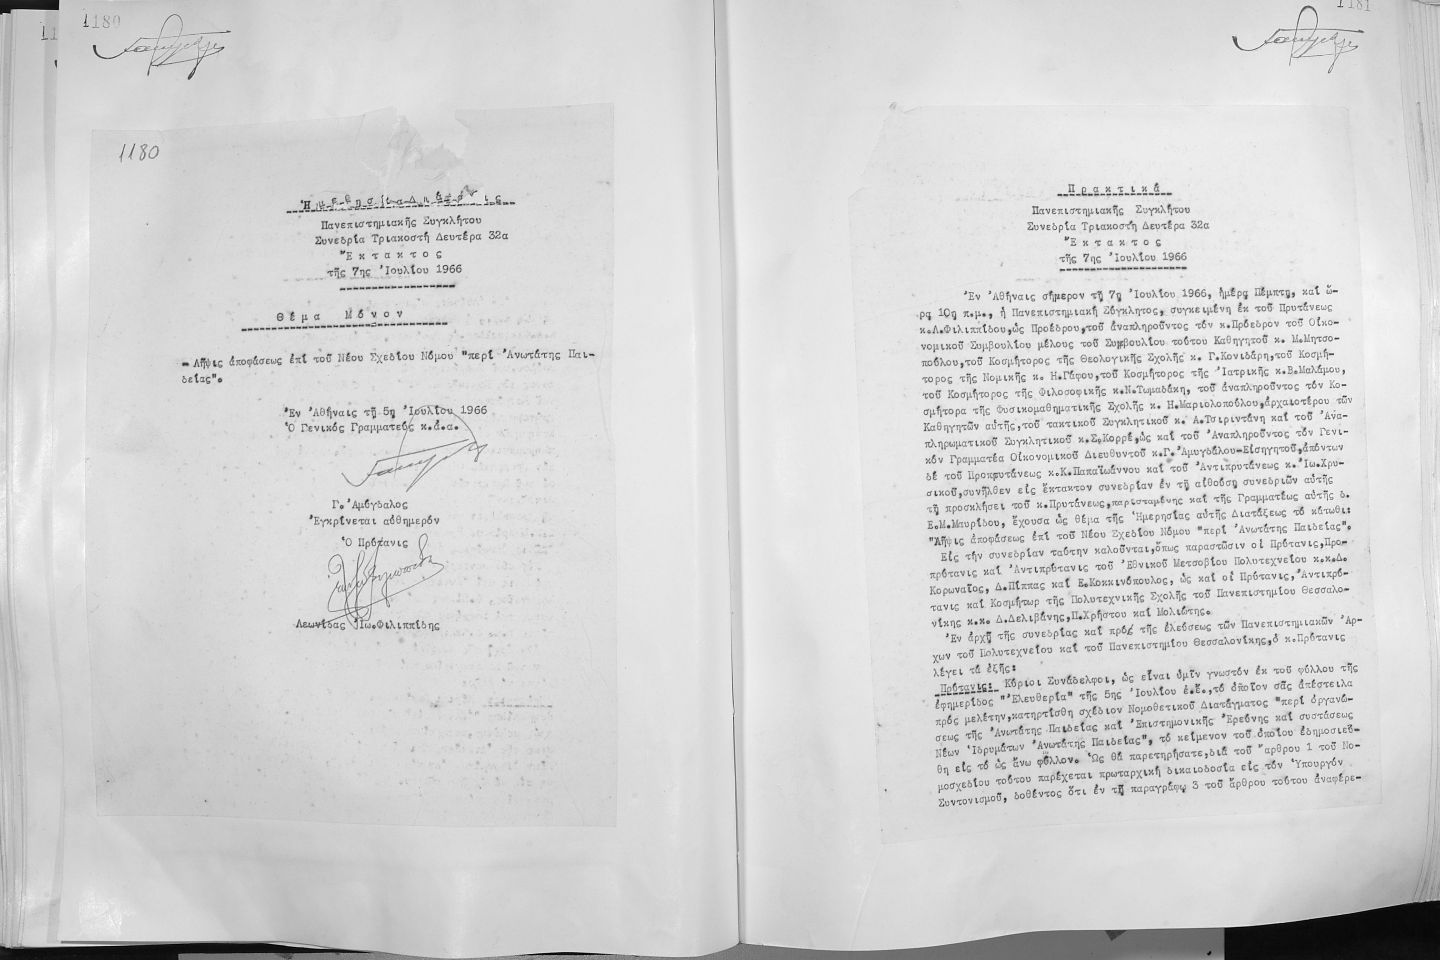 1180
1180
Ἡμερησία Διάταξις
Πανεπιστημιακῆς Συγκλήτου
Συνεδρία Τριακοστή Δευτέρα 32α
Ἔκτακτος
τῆς 7ης Ἰουλίου 1966
Θέμα Μόνον
- Λῆψις ἀποφάσεως ἐπί τοῦ Νέου Σχεδίου Νόμου "περί Ἀνωτάτης Παι-
δείας".
Ἐν Ἀθήναις τῇ 5ῃ Ἰουλίου 1966
Ὁ Γενικός Γραμματεύς κ.ἀ.α.
Γ. Ἀμύγδαλος
Ἐγκρίνεται αὐθημερόν
Ὁ Πρύτανις
Λεωνίδας Ἰω.Φιλιππίδης
1181
Πρακτικά
Πανεπιστημιακῆς Συγκλήτου
Συνεδρία Τριακοστή Δευτέρα 32α
Ἔκτακτος
τῆς 7ης Ἰουλίου 1966
Ἐν Ἀθήναις σήμερον τῇ 7ῃ Ἰουλίου 1966, ἡμέρᾳ Πέμπτῃ, καί ὥ-
ρᾳ 10ῃ π.μ., ἡ Πανεπιστημιακή Σύγκλητος, συγκειμένη ἐκ τοῦ Πρυτάνεως
κ.Λ.Φιλιππίδου,ὡς Προέδρου,τοῦ ἀναπληροῦντος τόν κ.Πρόεδρον τοῦ Οἰκο-
νομικοῦ Συμβουλίου μέλους τοῦ Συμβουλίου τούτου Καθηγητοῦ κ. Μ.Μητσο-
πούλου,τοῦ Κοσμήτορος τῆς Θεολογικῆς Σχολῆς κ. Γ.Κονιδάρη,τοῦ Κοσμή-
τορος τῆς Νομικῆς κ. Η.Γάφου,τοῦ Κοσμήτορος τῆς Ἰατρικῆς κ.Β.Μαλάμου,
τοῦ Κοσμήτορος τῆς Φιλοσοφικῆς κ.Ν.Τωμαδάκη, τοῦ ἀναπληροῦντος τόν Κο-
σμήτορα τῆς Φυσικομαθηματικῆς Σχολῆς κ. Η.Μαριολοπούλου,ἀρχαιοτέρου τῶν
Καθηγητῶν αὐτῆς,τοῦ τακτικοῦ Συγκλητικοῦ κ. Α.Τσιριντάνη καί τοῦ Ἀνα-
πληρωματικοῦ Συγκλητικοῦ κ.Σ.Κορρέ,ὡς καί τοῦ Ἀναπληροῦντος τόν Γενι-
κόν Γραμματέα Οἰκονομικοῦ Διευθυντοῦ κ.Γ.Ἀμυγδάλου-Εἰσηγητοῦ,ἀπόντων
δέ τοῦ Προπρυτάνεως κ.Κ.Παπαϊωάννου καί τοῦ Ἀντιπρυτάνεως κ.Ἰω.Χρυ-
σικοῦ,συνῆλθεν εἰς ἔκτακτον συνεδρίαν ἐν τῇ αἰθούσῃ συνεδριῶν αὐτῆς
τῇ προσκλήσει τοῦ κ.Πρυτάνεως,παρισταμένης καί τῆς Γραμματέως αὐτῆς δ.
Ε.Μ.Μαυρίδου, ἔχουσα ὡς θέμα τῆς Ἡμερησίας αὐτῆς Διατάξεως τό κάτωθι:
"Λῆψις ἀποφάσεως ἐπί τοῦ Νέου Σχεδίου Νόμου "περί Ἀνωτάτης Παιδείας".
Εἰς τήν συνεδρίαν ταύτην καλοῦνται,ὅπως παραστῶσιν οἱ Πρύτανις,Προ-
πρύτανις καί Ἀντιπρύτανις τοῦ Ἐθνικοῦ Μετσοβίου Πολυτεχνείου κ.κ.Δ.
Κορωναῖος, Δ.Πίππας καί Ε.Κοκκινόπουλος, ὡς καί οἱ Πρύτανις,Ἀντιπρύ-
τανις καί Κοσμήτωρ τῆς Πολυτεχνικῆς Σχολῆς τοῦ Πανεπιστημίου Θεσσαλο-
νίκης κ.κ. Δ.Δελιβάνης,Π.Χρήστου καί Μολιώτης.
Ἐν ἀρχῇ τῆς συνεδρίας καί πρό τῆς ἐλεύσεως τῶν Πανεπιστημιακῶν Ἀρ-
χων τοῦ Πολυτεχνείου καί τοῦ Πανεπιστημίου Θεσσαλονίκης,ὁ κ.Πρύτανις
λέγει τά ἑξῆς:
Πρύτανις: Κύριοι Συνάδελφοι, ὡς εἶναι ὑμῖν γνωστόν ἐκ τοῦ φύλλου τῆς
ἐφημερίδος "Ἐλευθερία" τῆς 5ης Ἰουλίου ἐ.ἔ.,τό ὁποῖον σᾶς ἀπέστειλα
πρός μελέτην,κατηρτίσθη σχέδιον Νομοθετικοῦ Διατάγματος "περί ὀργανώ-
σεως τῆς Ἀνωτάτης Παιδείας καί Ἐπιστημονικῆς Ἐρεύνης καί συστάσεως
Νέων Ἱδρυμάτων Ἀνωτάτης Παιδείας", τό κείμενον τοῦ ὁποίου ἐδημοσιεύ-
θη εἰς τό ὡς ἄνω φύλλον. Ὡς θά παρετηρήσατε,διά τοῦ ἄρθρου 1 τοῦ Νο-
μοσχεδίου τούτου παρέχεται πρωταρχική δικαιοδοσία εἰς τόν Ὑπουργόν
Συντονισμοῦ, δοθέντος ὅτι ἐν τῇ παραγράφῳ 3 τοῦ ἄρθρου τούτου ἀναφέρε-